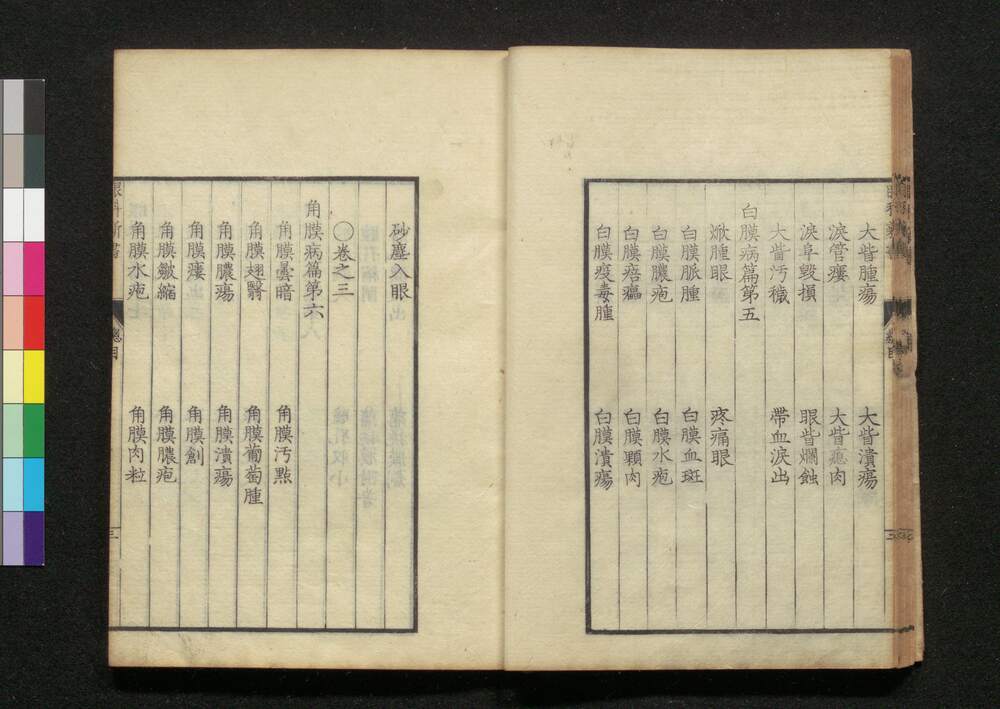 大眥腫瘍　大眥潰瘍
淚管瘻　大眥瘜肉
淚阜毀損　眼眥爛蝕
大眥汚穢　帶血淚出
白膜病篇第五
焮腫眼　疼痛眼
白膜脈腫　白膜血斑
白膜膿疱　白膜水疱
白膜痞癟　白膜顆肉
白膜痘毒腫　白膜潰瘍
砂塵入眼
○卷之三
角膜病篇第六
角膜曇暗　角膜汚點
角膜翅翳　角膜葡萄腫
角膜膿瘍　角膜潰瘍
角膜瘻　角膜創
角膜皺縮　角膜膿疱
角膜水疱　角膜肉粒
眼科新書　總目　三